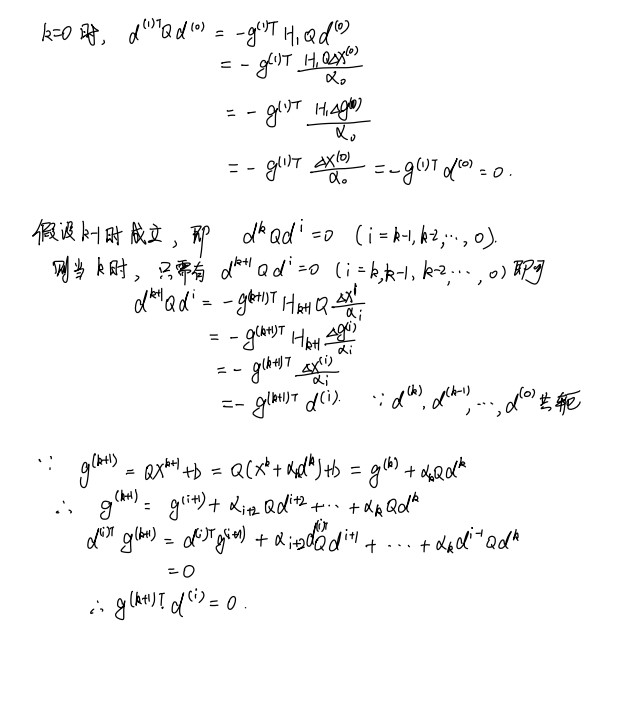 k=0 时, d^{(1)T} Q d^{(0)} = -g^{(1)T} H_1 Q d^{(0)}
= - g^{(1)T} \frac{H_1 Q ΔX^{(0)}}{α_0}
= - g^{(1)T} \frac{H_1 Δg^{(0)}}{α_0}
= - g^{(1)T} \frac{ΔX^{(0)}}{α_0} = -g^{(1)T} d^{(0)} = 0.
假设 k-1 时成立, 即 d^k Q d^i = 0 (i = k-1, k-2, ⋯, 0).
则当 k 时, 只需有 d^{k+1} Q d^i = 0 (i = k, k-1, k-2, ⋯, 0) 即可
d^{k+1} Q d^i = - g^{(k+1)T} H_{k+1} Q \frac{ΔX^i}{α_i}
= - g^{(k+1)T} H_{k+1} \frac{Δg^{(i)}}{α_i}
= - g^{(k+1)T} \frac{ΔX^{(i)}}{α_i}
= - g^{(k+1)T} d^{(i)}. ∵ d^{(k)}, d^{(k-1)}, ⋯, d^{(0)} 共轭
∵ g^{(k+1)} = QX^{k+1} + b = Q(X^k + α_k d^k) + b = g^{(k)} + α_k Q d^k
∴ g^{(k+1)} = g^{(i+1)} + α_{i+2} Q d^{i+2} + ⋯ + α_k Q d^k
d^{(i)T} g^{(k+1)} = d^{(i)T} g^{(i+1)} + α_{i+2} d^{(i)T} Q d^{i+1} + ⋯ + α_k d^{i-1} Q d^k
= 0
∴ g^{(k+1)T} . d^{(i)} = 0 .